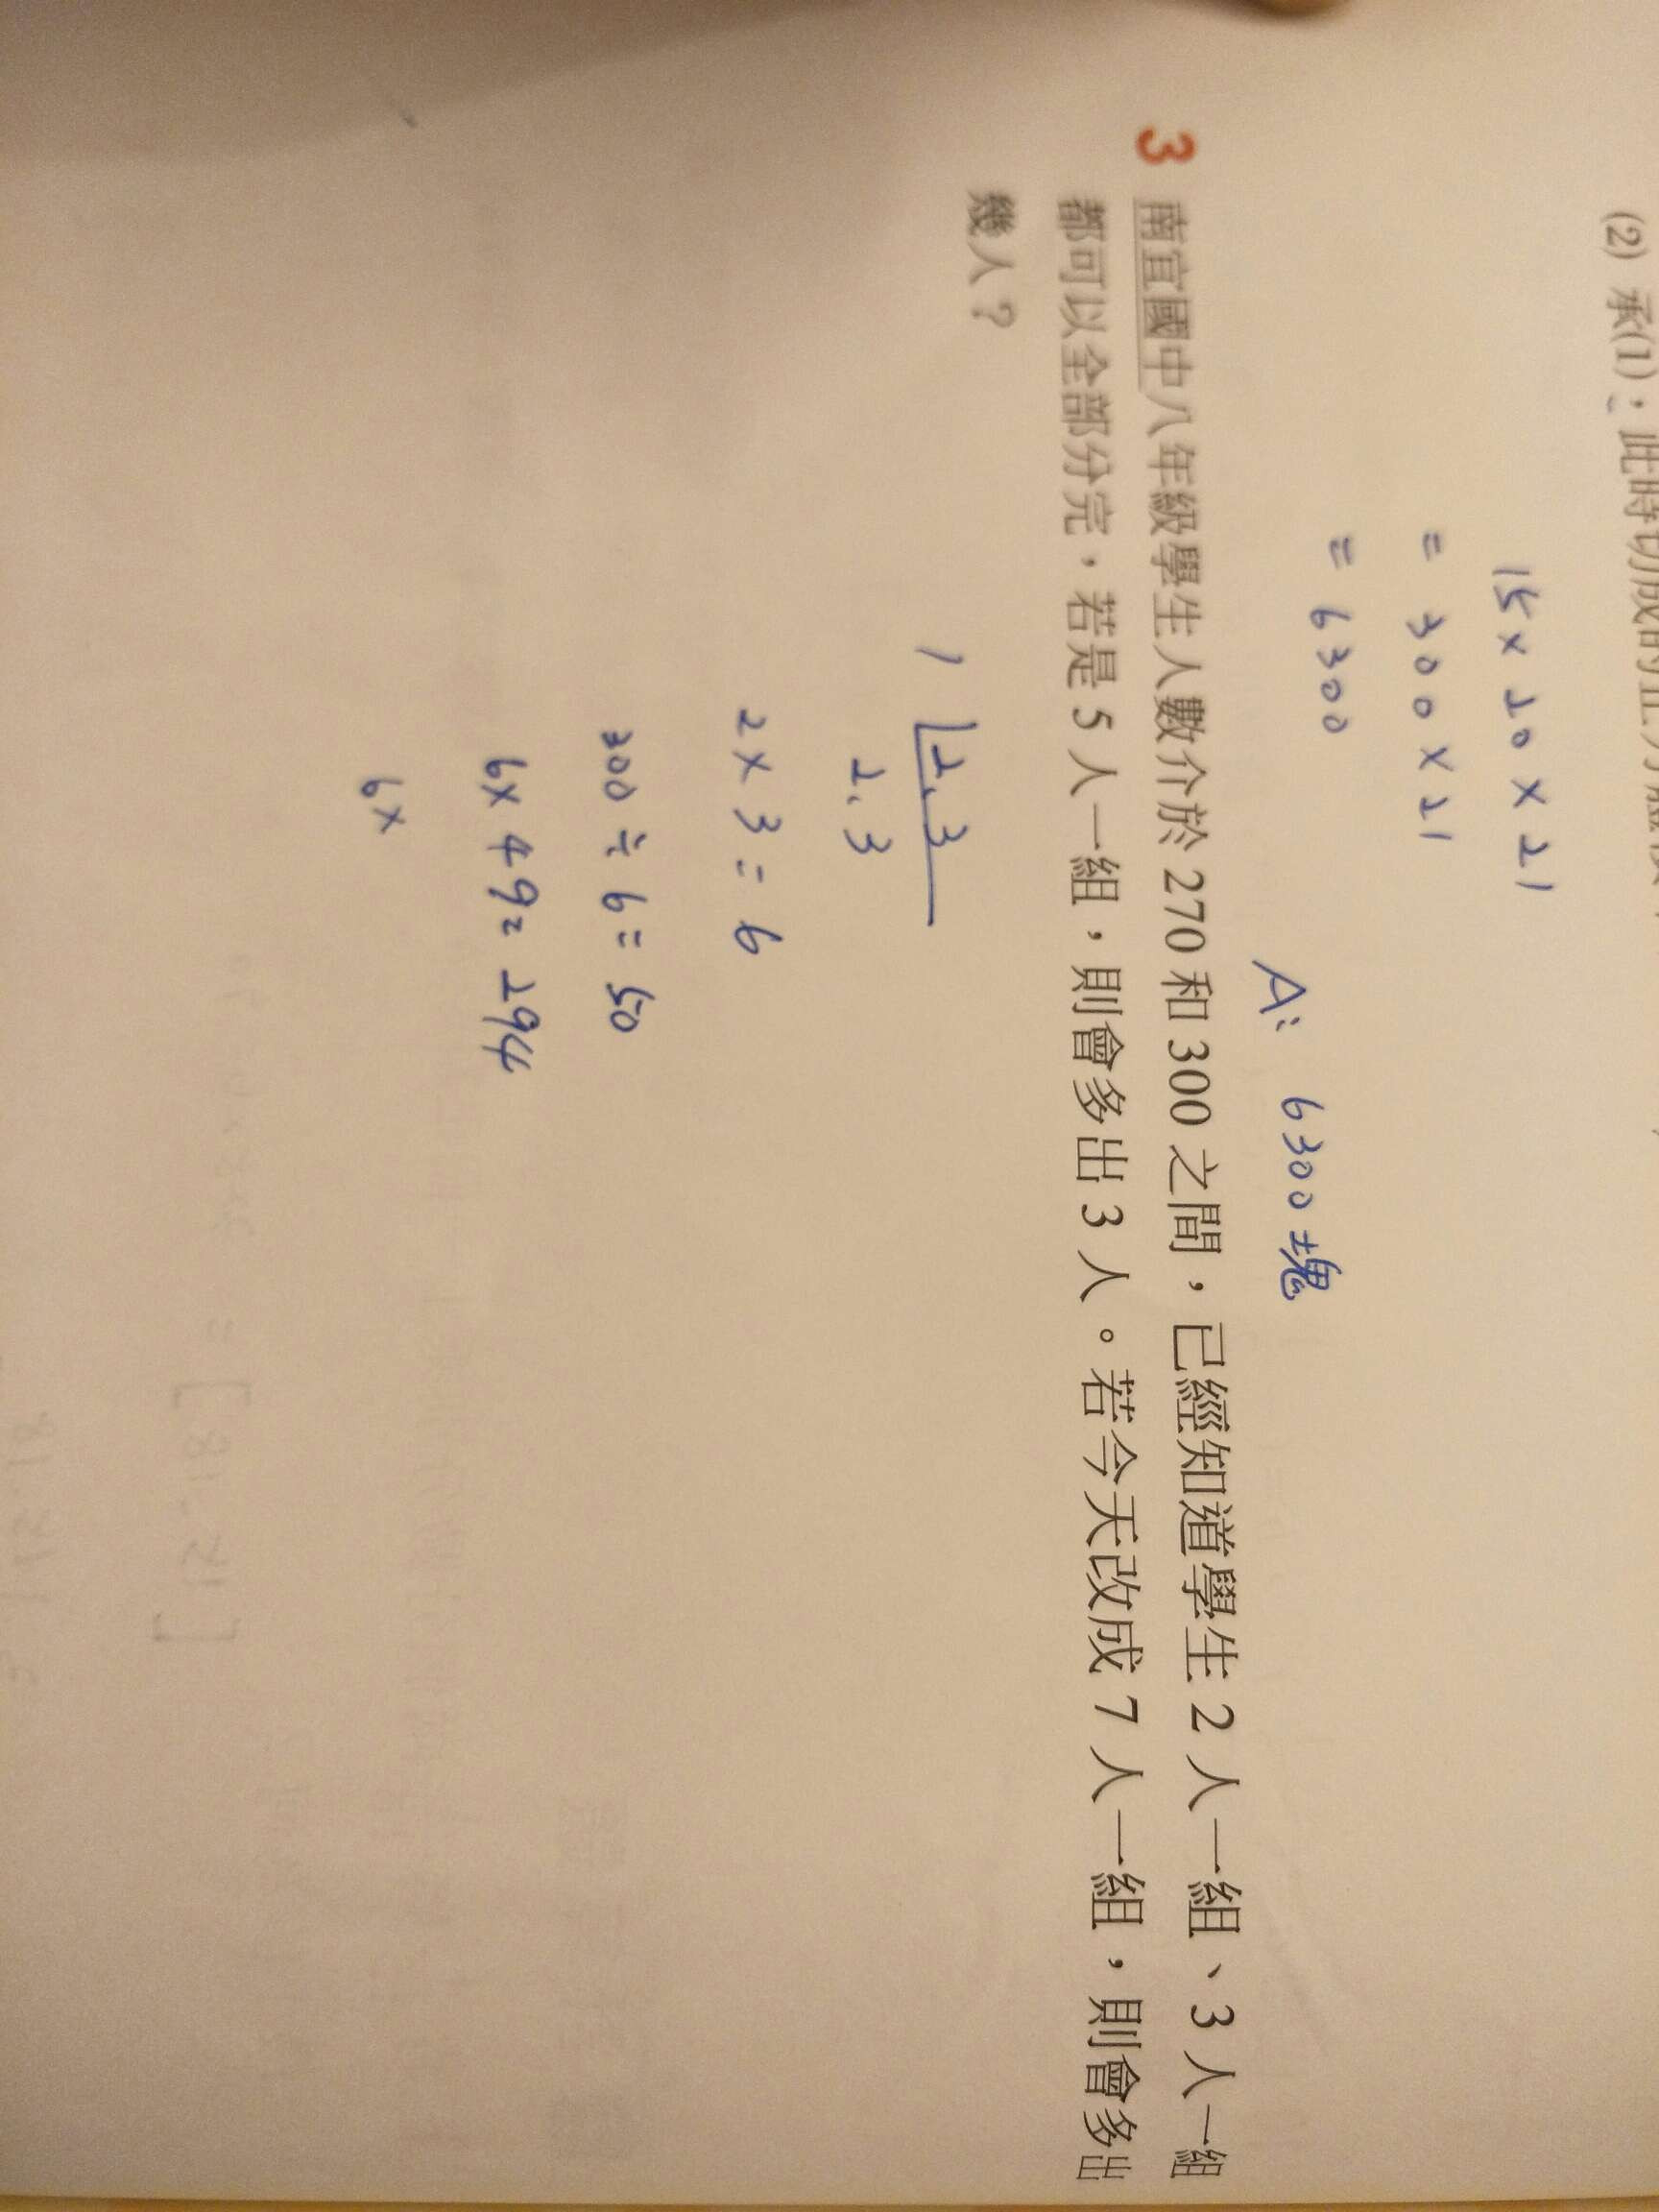 (2) 承(1)，此時切成的正方體
15×20×21
= 300×21
= 6300
A: 6300塊
3 南宜國中八年級學生人數介於 270 和 300 之間，已經知道學生 2 人一組、3 人一組
都可以全部分完，若是 5 人一組，則會多出 3 人。若今天改成 7 人一組，則會多出
幾人？
1 2,3
2,3
2×3=6
300÷6=50
6×49=294
6×